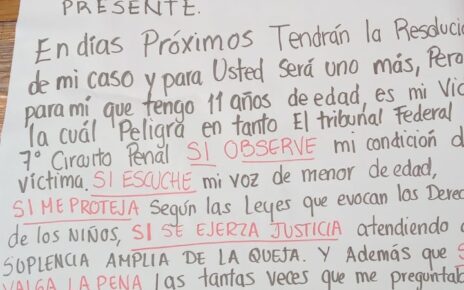 PRESENTE.
En días Próximos Tendrán la Resolució
de mi caso y para Usted Será uno más, Pero
para mí que tengo 11 años de edad, es mi Vid
la cuál Peligra en tanto El tribunal Federal
7° Circuito Penal SI OBSERVE mi condición d
víctima. SI ESCUCHE mi voz de menor de edad,
SI ME PROTEJA Según las Leyes que evocan los Derec
de los NIÑOS, SI SE EJERZA JUSTICIA atendiendo a
SUPLENCIA AMPLIA DE LA QUEJA. Y Además que S
VALGA LA PENA las tantas veces que me preguntab